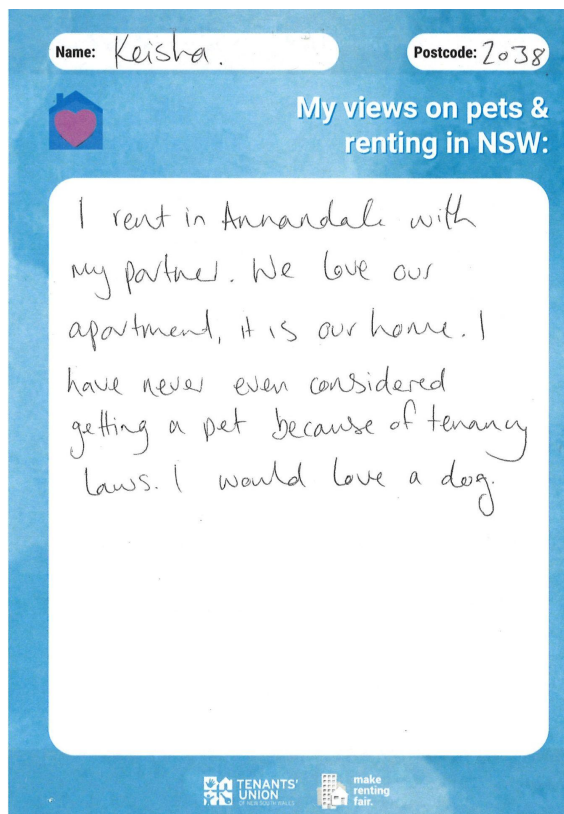 Name: Keisha.
Postcode: 2038
My views on pets &
renting in NSW:
I rent in Annandale with
my partner. We love our
apartment, it is our home. I
have never even considered
getting a pet because of tenancy
laws. I would love a dog.
TENANTS'
UNION
OF NEW SOUTH WALES
make
renting
fair.